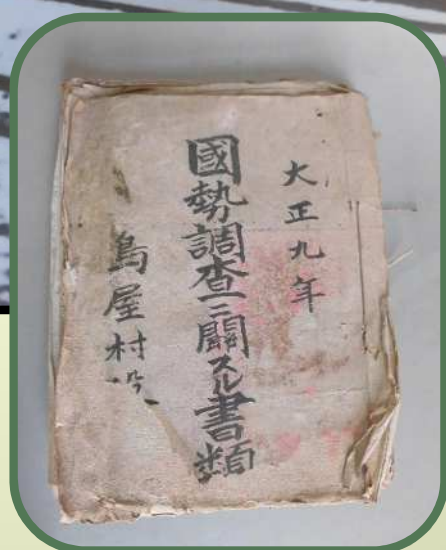 大正九年
國勢調査ニ關スル書類
島屋村